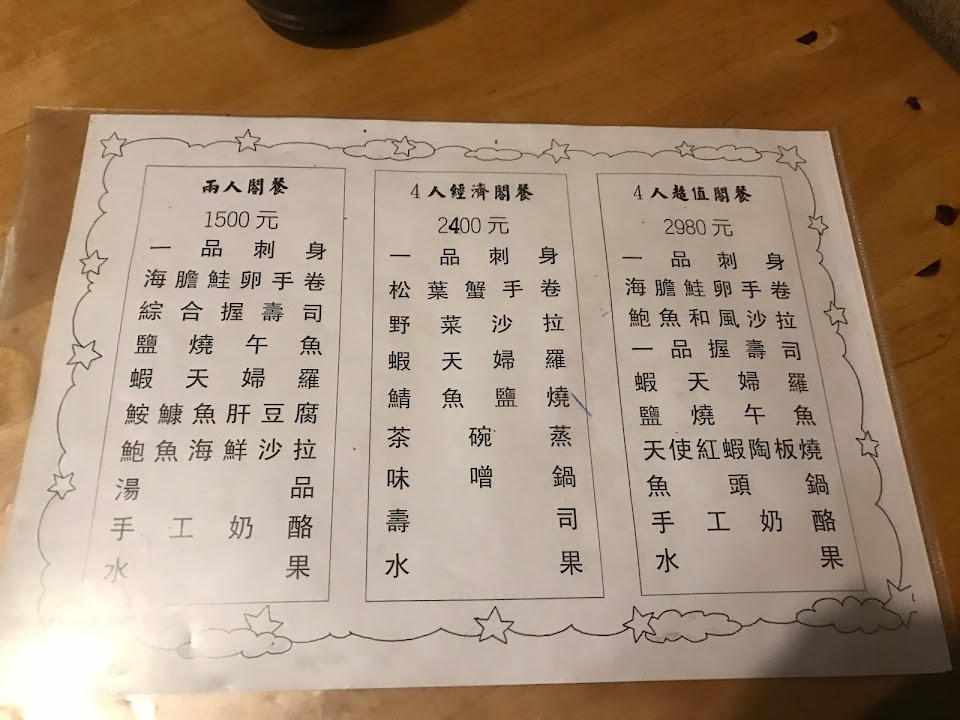 兩人閤餐
1500 元
一品刺身
海膽鮭卵手卷
綜合握壽司
鹽燒午魚
蝦天婦羅
鮟鱇魚肝豆腐
鮑魚海鮮沙拉
湯品
手工奶酪
水果
4人經濟閤餐
2400 元
一品刺身
松葉蟹手卷
野菜沙拉
蝦天婦羅
鯖魚鹽燒
茶碗蒸
味噌鍋
壽司
水果
4人超值閤餐
2980 元
一品刺身
海膽鮭卵手卷
鮑魚和風沙拉
一品握壽司
蝦天婦羅
鹽燒午魚
天使紅蝦陶板燒
魚頭鍋
手工奶酪
水果